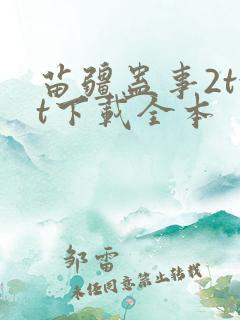 苗疆蛊事2tx
t下载全本
邹雷
未经同意禁止转载